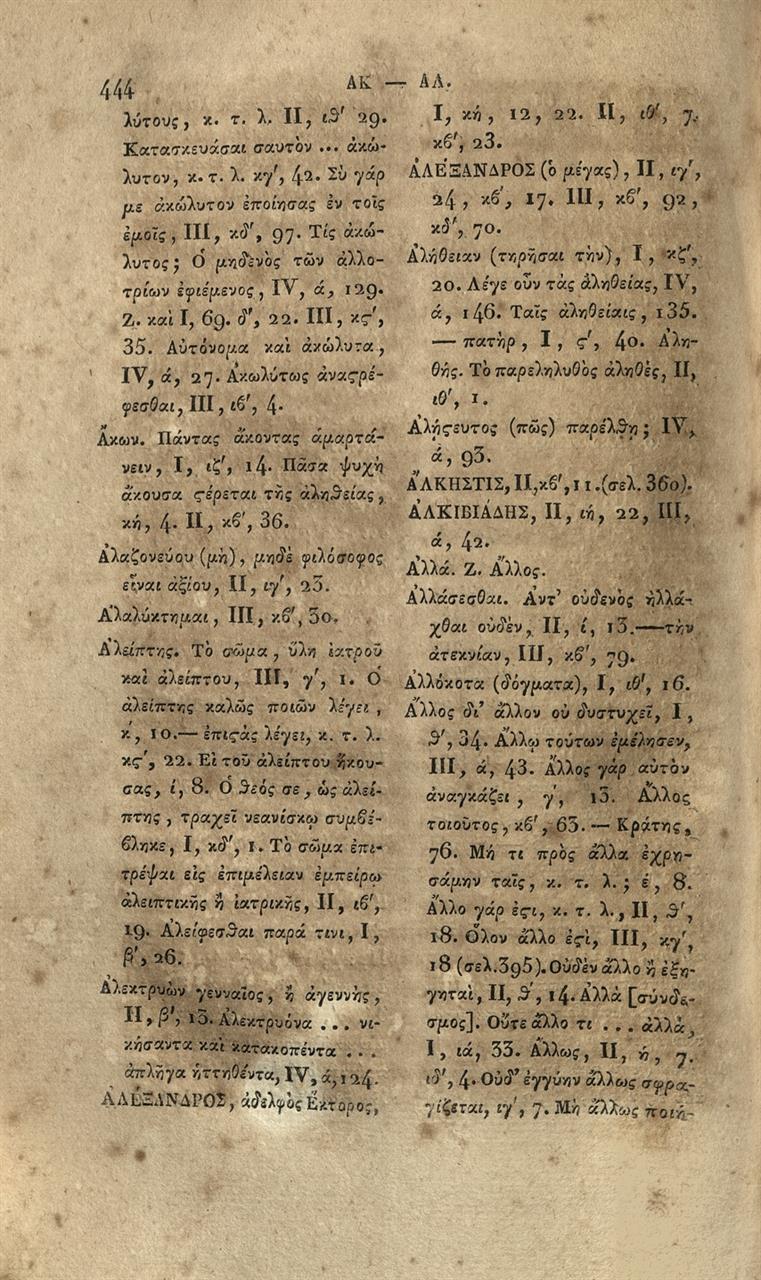 444
ΑΚ — ΑΛ.
λύτους, κ. τ. λ. II, ιθ′ 29.
Κατασκευάσαι σαυτὸν ... ἀκώ-
λυτον, κ. τ. λ. κγ′, 42. Σὺ γάρ
με ἀκώλυτον ἐποίησας ἐν τοῖς
ἐμοῖς, III, κδ′, 97. Τίς ἀκώ-
λυτος; Ὁ μηδενὸς τῶν ἀλλο-
τρίων ἐφιέμενος, IV, ά, 129.
Ζ. καὶ I, 69. δ′, 22. III, κϛ′,
35. Αὐτόνομα καὶ ἀκώλυτα,
IV, ά, 27. Ἀκωλύτως ἀναϛρέ-
φεσθαι, III, ιβ′, 4.
Ἄκων. Πάντας ἄκοντας ἁμαρτά-
νειν, I, ιζ′, 14. Πᾶσα ψυχὴ
ἄκουσα ϛέρεται τῆς ἀληθείας,
κή, 4. II, κβ′, 36.
Ἀλαζονεύου (μὴ), μηδὲ φιλόσοφος
εἶναι ἀξίου, II, ιγ′, 23.
Ἀλαλύκτημαι, III, κβ′, 30.
Ἀλείπτης. Τὸ σῶμα, ὕλη ἰατροῦ
καὶ ἀλείπτου, III, γ′, 1. Ὁ
ἀλείπτης καλῶς ποιῶν λέγει,
κ′, 10.— ἐπιϛὰς λέγει, κ. τ. λ.
κϛ′, 22. Εἰ τοῦ ἀλείπτου ἤκου-
σας, ί, 8. Ὁ θεός σε, ὡς ἀλεί-
πτης, τραχεῖ νεανίσκῳ συμβέ-
βληκε, I, κδ′, 1. Τὸ σῶμα ἐπι-
τρέψαι εἰς ἐπιμέλειαν ἐμπείρῳ
ἀλειπτικῆς ἢ ἰατρικῆς, II, ιβ′,
19. Ἀλείφεσθαι παρά τινι, I,
β′, 26.
Ἀλεκτρυὼν γενναῖος, ἢ ἀγεννὴς,
II, β′, 13. Ἀλεκτρυόνα ... νι-
κήσαντα καὶ κατακοπέντα ...
ἀπλῆγα ἡττηθέντα, IV, ά, 124.
ΑΛΕΞΑΝΔΡΟΣ, ἀδελφὸς Ἕκτορος,
I, κή, 12, 22. II, ιθ′, 7.
κβ′, 23.
ἈΛΕΞΑΝΔΡΟΣ (ὁ μέγας), II, ιγ′,
24, κβ′, 17. III, κβ′, 92,
κδ′, 70.
Ἀλήθειαν (τηρῆσαι τὴν), I, κζ′,
20. Λέγε οὖν τὰς ἀληθείας, IV,
ά, 146. Ταῖς ἀληθείαις, 135.
— πατὴρ, I, ϛ′, 40. Ἀλη-
θής. Τὸ παρεληλυθὸς ἀληθὲς, II,
ιθ′, 1.
Ἀλήϛευτος (πῶς) παρέλθῃ; IV,
ά, 93.
ἌΛΚΗΣΤΙΣ, II, κβ′, 11. (σελ. 360).
ἈΛΚΙΒΙΆΔΗΣ, II, ιή, 22, III,
ά, 42.
Ἀλλά. Ζ. Ἄλλος.
Ἀλλάσεσθαι. Ἀντ’ οὐδενὸς ἠλλά-
χθαι οὐδὲν, II, ί, 13.—τὴν
ἀτεκνίαν, III, κβ′, 79.
Ἀλλόκοτα (δόγματα), I, ιθ′, 16.
Ἄλλος δι’ ἄλλον οὐ δυστυχεῖ, I,
θ′, 34. Ἄλλῳ τούτων ἐμέλησεν,
III, ά, 43. Ἄλλος γὰρ αὐτὸν
ἀναγκάζει, γ′, 13. Ἄλλος
τοιοῦτος, κβ′, 63. — Κράτης,
76. Μή τι πρὸς ἄλλα ἐχρη-
σάμην ταῖς, κ. τ. λ.; έ, 8.
Ἄλλο γάρ ἐϛι, κ. τ. λ., II, θ′,
18. Ὅλον ἄλλο ἐϛὶ, III, κγ′,
18 (σελ. 395). Οὐδὲν ἄλλο ἢ ἐξη-
γηταὶ, II, θ′, 14. Ἀλλὰ [σύνδε-
σμος]. Οὔτε ἄλλο τι ... ἀλλὰ,
I, ιά, 33. Ἄλλως, II, ή, 7.
ιδ′, 4. Οὐδ’ ἐγγύην ἄλλως σφρα-
γίζεται, ιγ′, 7. Μὴ ἄλλως ποιή-